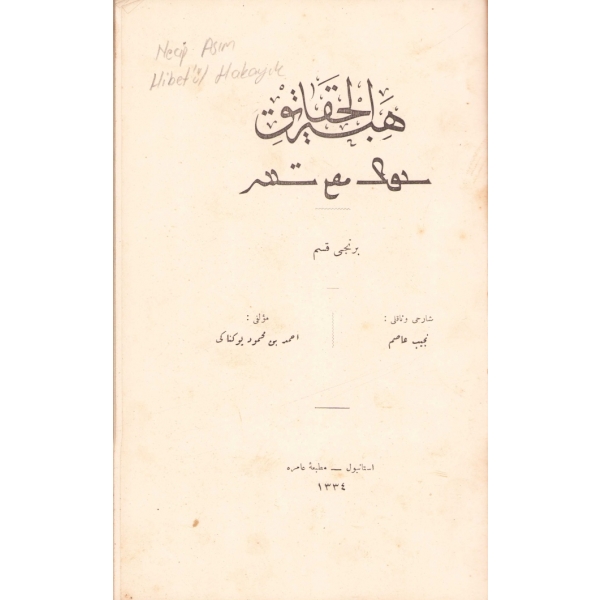 Necip Asım
Hibet'ül Hakayık
هبة الحقايق
برنجی قسم
شارحی وناقلی :
نجیب عاصم
مؤلفی :
احمد بن محمود یوکناکی
استانبول — مطبعهٔ عامره
١٣٣٤